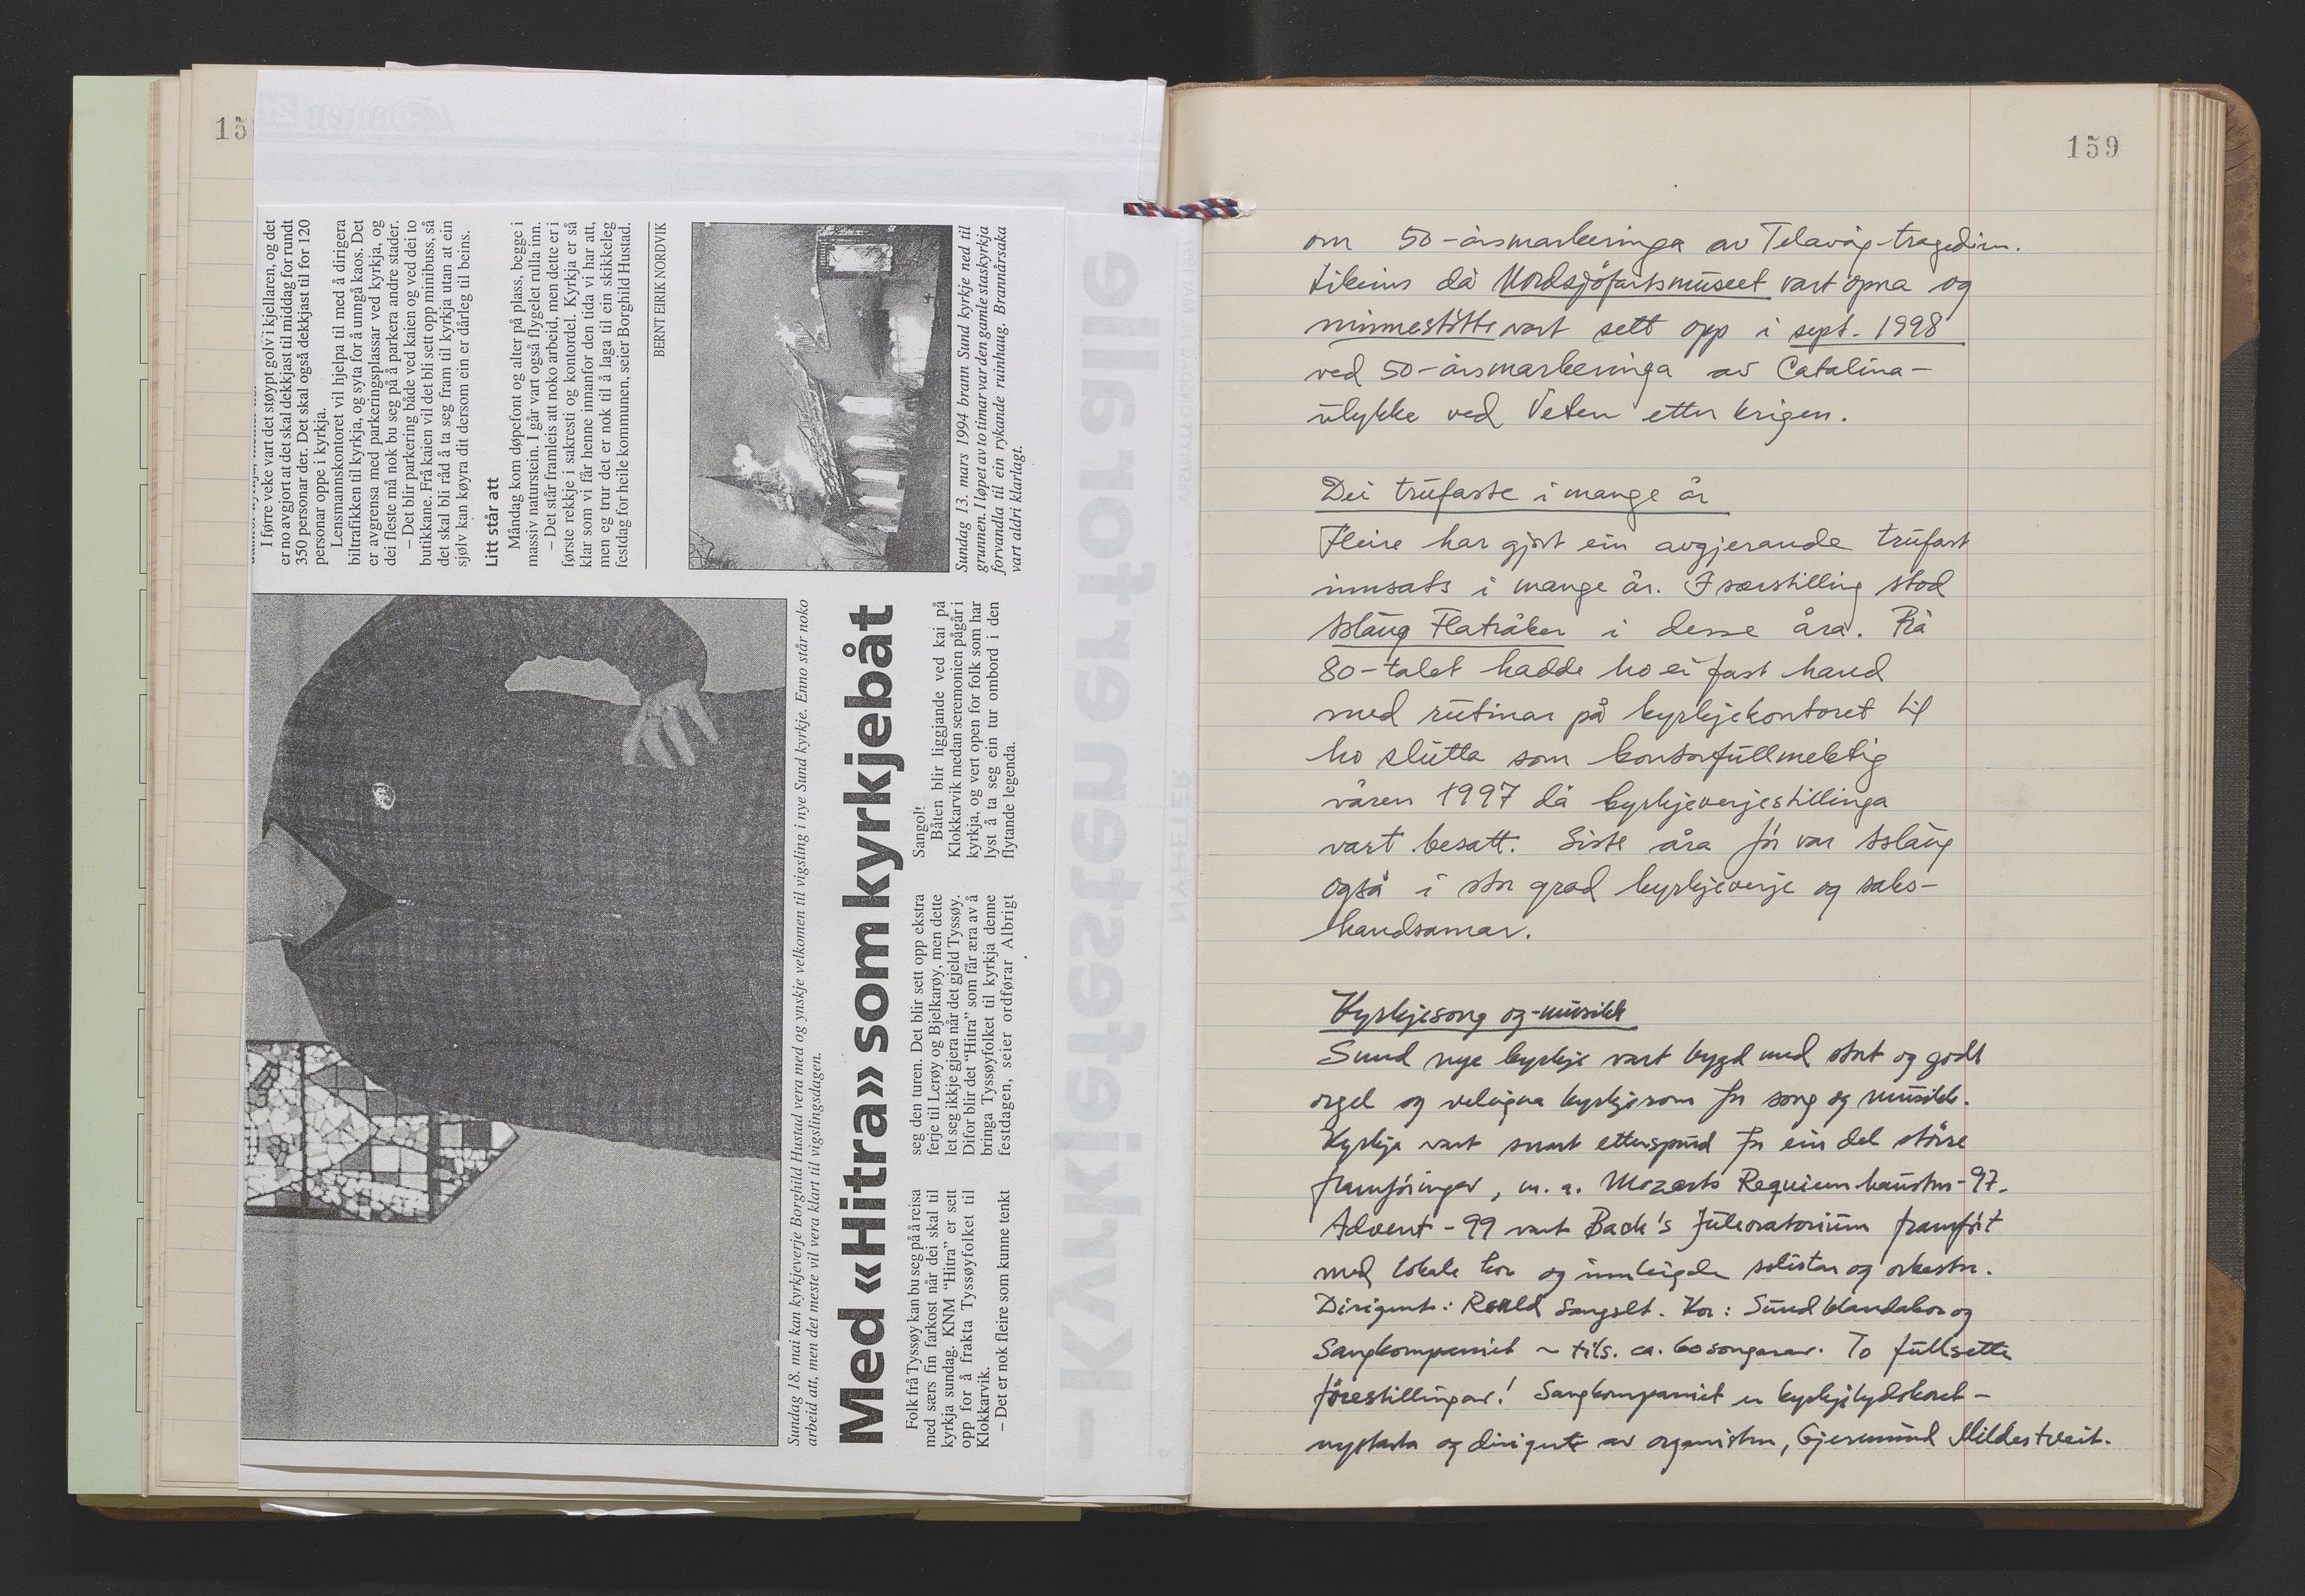 15
I førre veke vart det støypt golv i kjellaren, og det
er no avgjort at det skal dekkjast til middag for rundt
350 personar der. Det skal også dekkjast til for 120
personar oppe i kyrkja.
Lensmannskontoret vil hjelpa til med å dirigera
biltrafikken til kyrkja, og syta for å unngå kaos. Det
er avgrensa med parkeringsplassar ved kyrkja, og
dei fleste må nok bu seg på å parkera andre stader.
– Det blir parkering både ved kaien og ved dei to
butikkane. Frå kaien vil det bli sett opp minibuss, så
det skal bli råd å ta seg fram til kyrkja utan at ein
sjølv kan køyra dit dersom ein er dårleg til beins.
Litt står att
Måndag kom døpefont og alter på plass, begge i
massiv naturstein. I går vart også flygelet rulla inn.
– Det står framleis att noko arbeid, men dette er i
første rekkje i sakresti og kontordel. Kyrkja er så
klar som vi får henne innanfor den tida vi har att,
men eg trur det er nok til å laga til ein skikkeleg
festdag for heile kommunen, seier Borghild Hustad.
BERNT EIRIK NORDVIK
Sundag 13. mars 1994 brann Sund kyrkje ned til
grunnen. I løpet av to timar var den gamle staskyrkja
forvandla til ein rykande ruinhaug. Brannårsaka
vart aldri klarlagt.
Sundag 18. mai kan kyrkjeverje Borghild Hustad vera med og ynskje velkomen til vigsling i nye Sund kyrkje. Enno står noko
arbeid att, men det meste vil vera klart til vigslingsdagen.
Med «Hitra» som kyrkjebåt
Folk frå Tyssøy kan bu seg på å reisa
med særs fin farkost når dei skal til
kyrkja sundag. KNM "Hitra" er sett
opp for å frakta Tyssøyfolket til
Klokkarvik.
– Det er nok fleire som kunne tenkt
seg den turen. Det blir sett opp ekstra
ferje til Lerøy og Bjelkarøy, men dette
let seg ikkje gjera når det gjeld Tyssøy.
Difor blir det "Hitra" som får æra av å
bringa Tyssøyfolket til kyrkja denne
festdagen, seier ordførar Albrigt
Sangolt.
Båten blir liggjande ved kai på
Klokkarvik medan seremonien pågår i
kyrkja, og vert open for folk som har
lyst å ta seg ein tur ombord i den
flytande legenda.
– Kyrkjefesten er for alle
NYHETER
159
om 50-årsmarkeringa av Telavåg-tragedien.
Likeins då Nordsjøfartsmuseet vart opna og
minnestøtte vart sett opp i sept. 1998
ved 50-årsmarkeringa av Catalina-
ulykke ved Veten etter krigen.
Dei trufaste i mange år
Fleire har gjort ein avgjerande trufast
innsats i mange år. I særstilling stod
Aslaug Flatråker i desse åra. Frå
80-talet hadde ho ei fast hand
med rutinar på kyrkjekontoret til
ho slutta som kontorfullmektig
våren 1997 då kyrkjeverjestillinga
vart besatt. Siste åra før var Aslaug
også i stor grad kyrkjeverje og saks-
handsamar.
Kyrkjesong og -musikk
Sund nye kyrkje vart bygd med stort og godt
orgel og veleigna kyrkjerom for song og musikk.
Kyrkja vart snart etterspurd for ein del større
framføringar, m.a. Mozarts Requiem hausten -97.
Advent -99 vart Bach's Juleoratorium framført
med lokale kor og innleigde solistar og orkester.
Dirigent: Roald Sangolt. Kor: Sund blandakor og
Sangkompaniet ~ tils. ca. 60 songarar. To fullsette
førestillingar! Sangkompaniet er kyrkjelydskoret –
nystarta og dirigert av organisten, Gjermund Mildestveit.